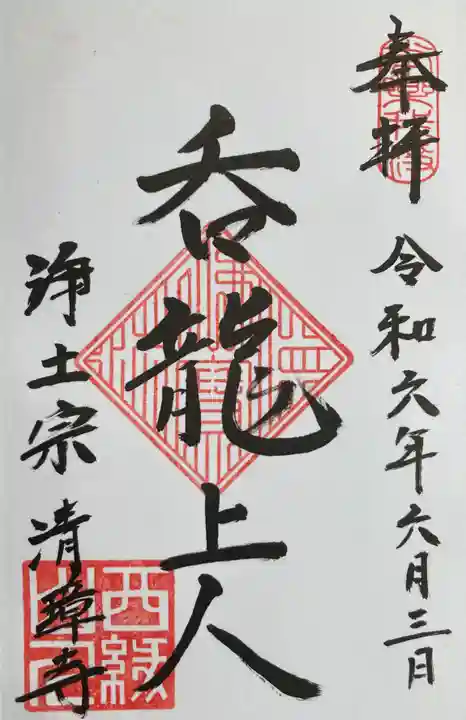 奉拝
令和六年六月三日
呑龍上人
浄土宗 清璋寺